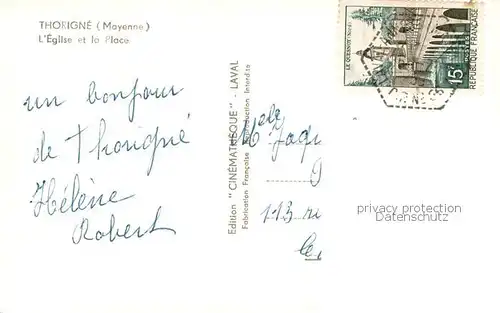 THORIGNÉ (Mayenne)
L'Église et la Place
un bonjour
de Thorigné
Hélène
Robert
Edition "CINÉMATHÈQUE" - LAVAL
Fabrication Française Reproduction Interdite
LE QUESNOY (NORD)
15F
RÉPUBLIQUE FRANÇAISE
Melle Jaqu
113 
privacy protection
Datenschutz